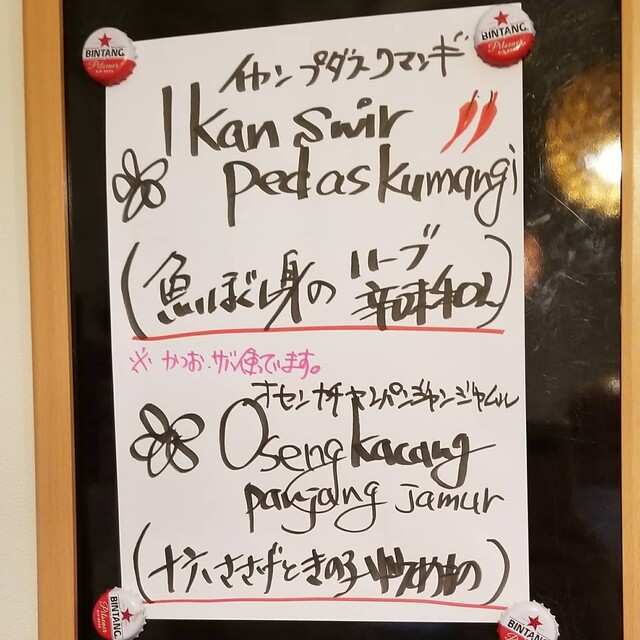 BINTANG
Pilsener
BINTANG
Pilsener
イカンプダスクマンギ
Ikan Swir
pedas kumangi
(魚ほぐし身のハーブ辛味和え)
※かつお・サバ使っています。
オセンカチャンパンジャンジャムル
Oseng kacang
panjang jamur
(十六ささげときの子炒めもの)
BINTANG
Pilsener
BINTANG
Pilsener